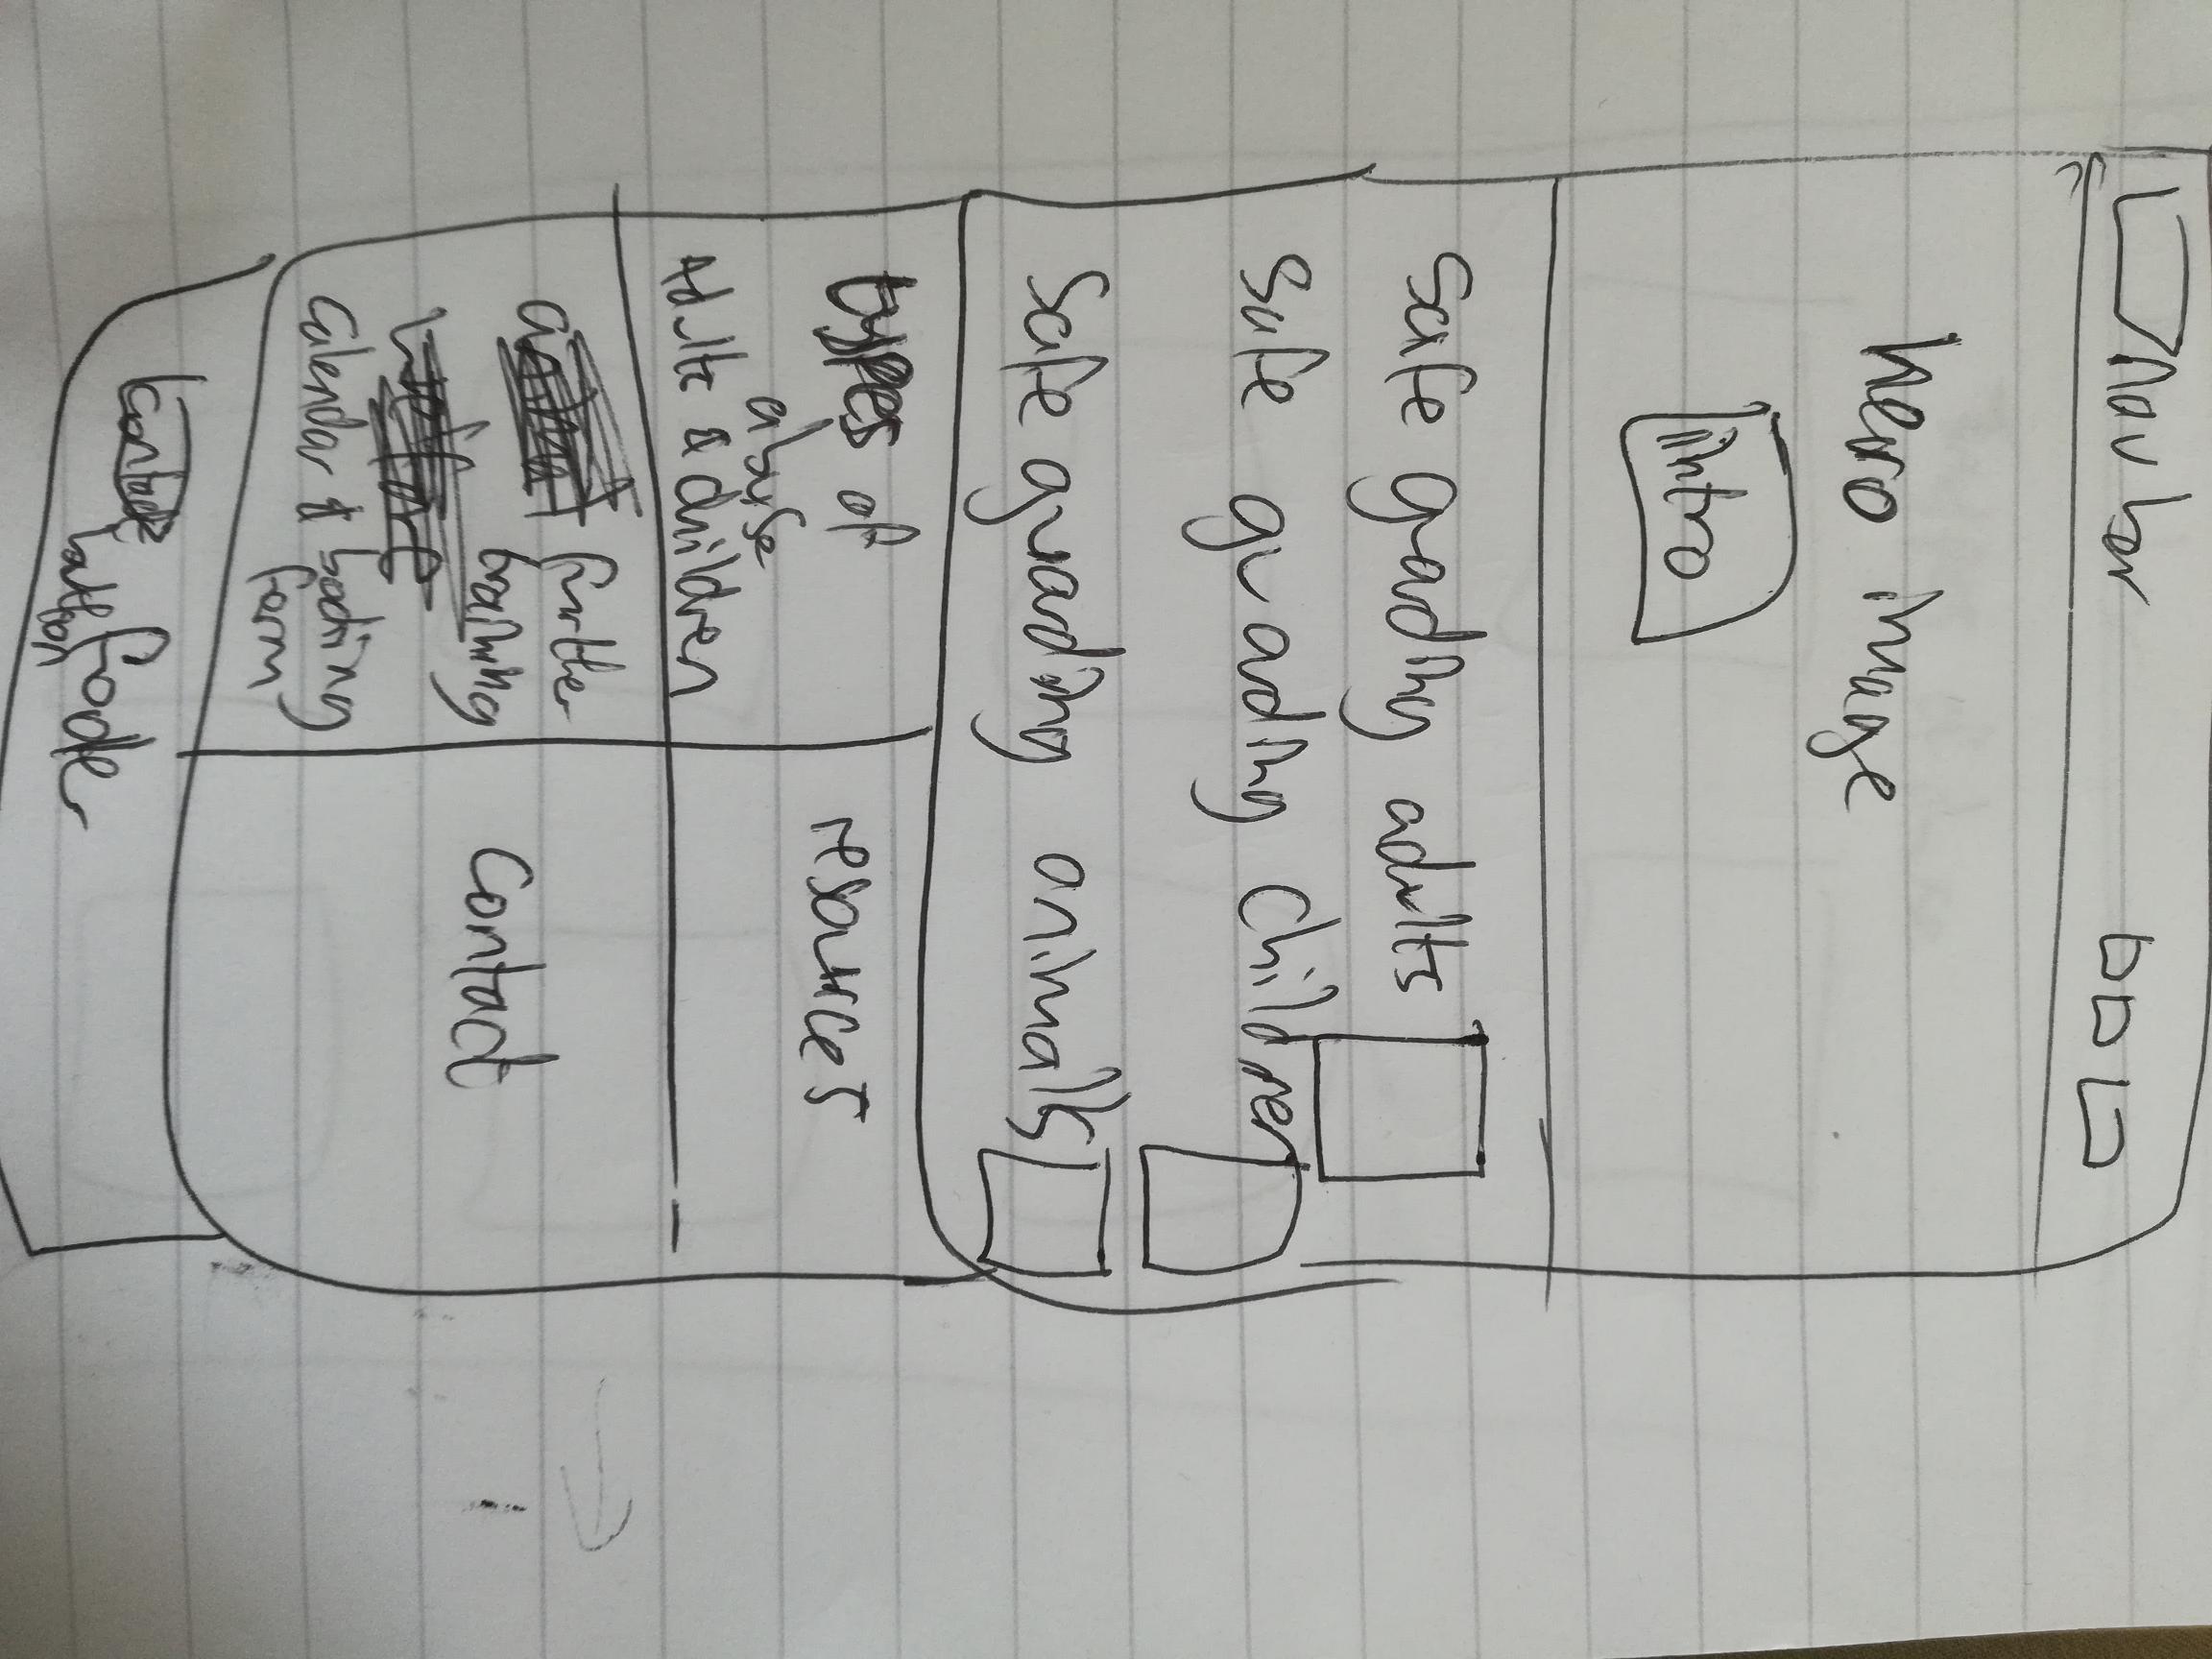 nav bar
hero image
intro
safe grading adults
safe guading children
Safe guarding animals
types of
abuse
Adults & children
resources
further
training
Calendar & booking
form
contact
Contact
button
foode